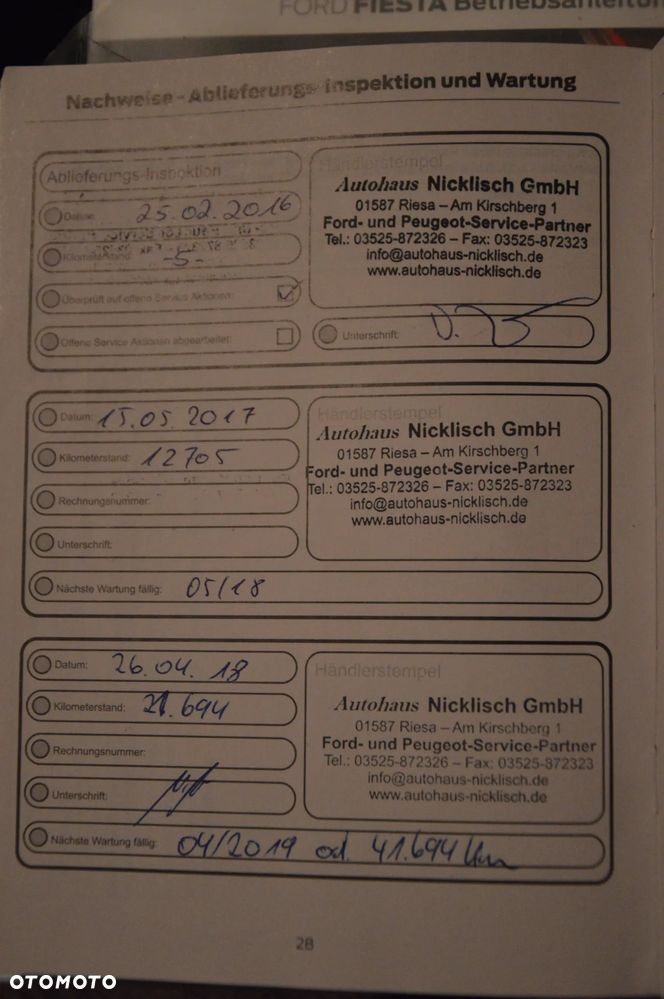 FORD FIESTA Betriebsanleitun
Nachweise - Ablieferungs-Inspektion und Wartung
Ablieferungs-Inspektion
Händlerstempel
Datum: 25.02.2016
Kilometerstand: -5-
Überprüft auf offene Service Aktionen:
Offene Service Aktionen abgearbeitet:
Autohaus Nicklisch GmbH
01587 Riesa – Am Kirschberg 1
Ford- und Peugeot-Service-Partner
Tel.: 03525-872326 – Fax: 03525-872323
info@autohaus-nicklisch.de
www.autohaus-nicklisch.de
Unterschrift:
Datum: 15.05.2017
Kilometerstand: 12705
Rechnungsnummer:
Unterschrift:
Händlerstempel
Autohaus Nicklisch GmbH
01587 Riesa – Am Kirschberg 1
Ford- und Peugeot-Service-Partner
Tel.: 03525-872326 – Fax: 03525-872323
info@autohaus-nicklisch.de
www.autohaus-nicklisch.de
Nächste Wartung fällig: 05/18
Datum: 26.04.18
Kilometerstand: 21.694
Rechnungsnummer:
Unterschrift:
Händlerstempel
Autohaus Nicklisch GmbH
01587 Riesa – Am Kirschberg 1
Ford- und Peugeot-Service-Partner
Tel.: 03525-872326 – Fax: 03525-872323
info@autohaus-nicklisch.de
www.autohaus-nicklisch.de
Nächste Wartung fällig: 04/2019 od. 41.694 Km
28
OTOMOTO